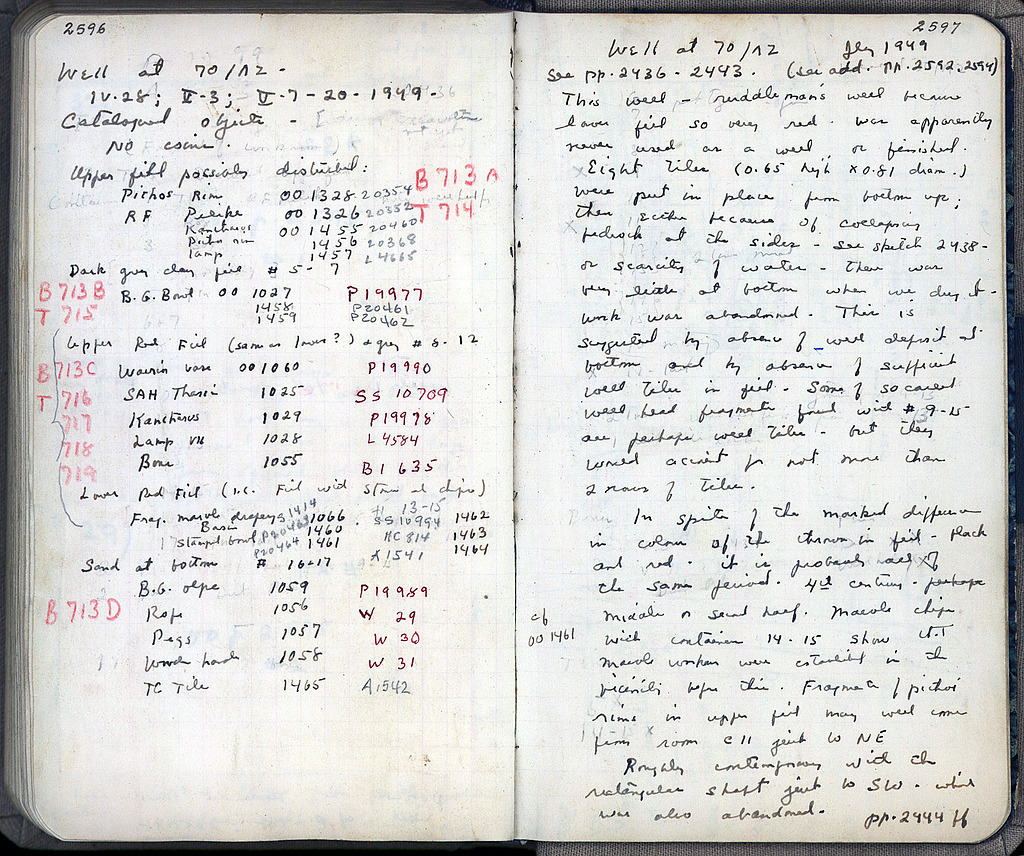 2596
Well at 70/ΛΖ -
IV.28; V-3; V-7-20-1949-
Catalogued objects -
No coins.
Upper fill possibly disturbed:
B 713 A
Pithos Rim OO 1328 20354
T 714
RF Pelike OO 1326 20352
Kantharos OO 1455 20460
Pithos rim 1456 20368
Lamp 1457 L 4665
Dark grey clay fill #5-7
B 713 B
B.G. Bowl OO 1027 P 19977
T 715
1458 P20461
1459 P20462
Upper Red Fill (same as lower?) + grey #8-12
B 713 C
vase OO 1060 P 19990
T 716
SAH 1025 SS 10709
717
Kantharos 1029 P 19978
718
Lamp VII 1028 L 4584
719
Bone 1055 BI 635
Lower Red Fill (i.e. Fill with stone chips)
# 13-15
Frag. marble drapery S 1414 1066 SS 10994 1462
Basin P20463 1460 MC 814 1463
Stamped bowl P20464 1461 A 1541 1464
Sand at bottom # 16+17
B.G. olpe 1059 P 19989
B 713 D
Rope 1056 W 29
Pegs 1057 W 30
Wooden 1058 W 31
TC Tile 1465 A 1542
2597
Well at 70/ΛΖ July 1949
See pp. 2436-2443. (see add. pp. 2592, 2594)
This well - man's well because
lower fill so very red - was apparently
never used as a well or finished.
Eight Tiles (0.65 high x 0.81 diam.)
were put in place from bottom up;
then either because of collapsing
bedrock at the sides - see sketch 2438 -
or scarcity of water - there was
very little at bottom when we dug it -
work was abandoned. This is
suggested by absence of well deposit at
bottom and by absence of sufficient
well tiles in fill. Some of so called
well head fragments found with #9-15
are perhaps well tiles - but they
would account for not more than
2 rows of tiles.
In spite of the marked difference
in colour of the thrown in fill - black
and red - it is probably all of
the same period. 4th century - perhaps
middle or second half. Marble chips
cf OO 1461
with container 14-15 show that
marble workers were established in the
vicinity before this. Fragments of pithoi
rims in upper fill may well come
from room C11 just to NE
Roughly contemporary with the
rectangular shaft just to SW - which
was also abandoned. pp. 2444 ff